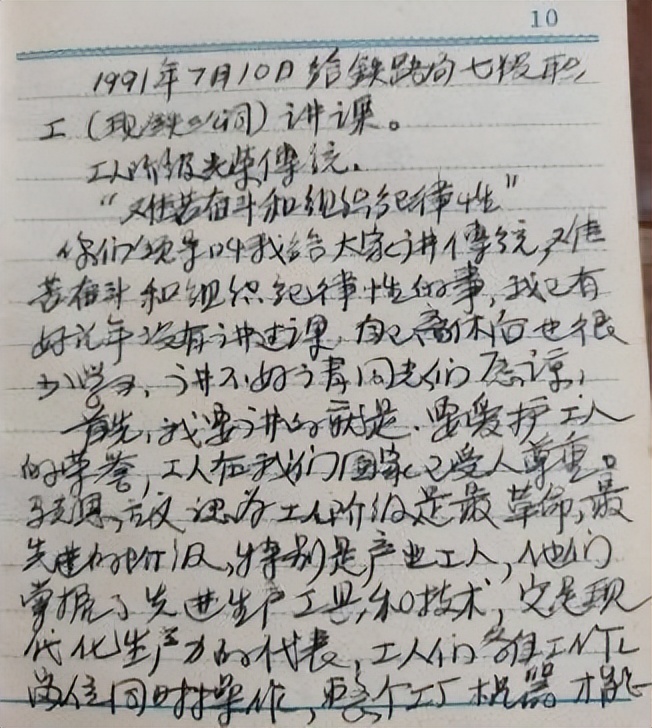 10
1991年7月10日给铁路局七级职
工（现铁公司）讲课。
工人阶级光荣傳统.
“艰苦奋斗和组织纪律性”
你们领导叫我给大家讲傳统,艰
苦奋斗和组织纪律性的事,我已有
好几年没有讲过课,自己离休后也很
少学习,讲不好请同志们原谅,
首先,我要讲的就是.要爱护工人
的荣誉,工人在我们国家已受人尊重。
马克思,认为工人阶级是最革命,最
先进的阶级,特别是产业工人,他们
掌握了先进生产工具,和技术,它是现
代化生产力的代表,工人们各自
岗位同时操作,整个工厂机器才能